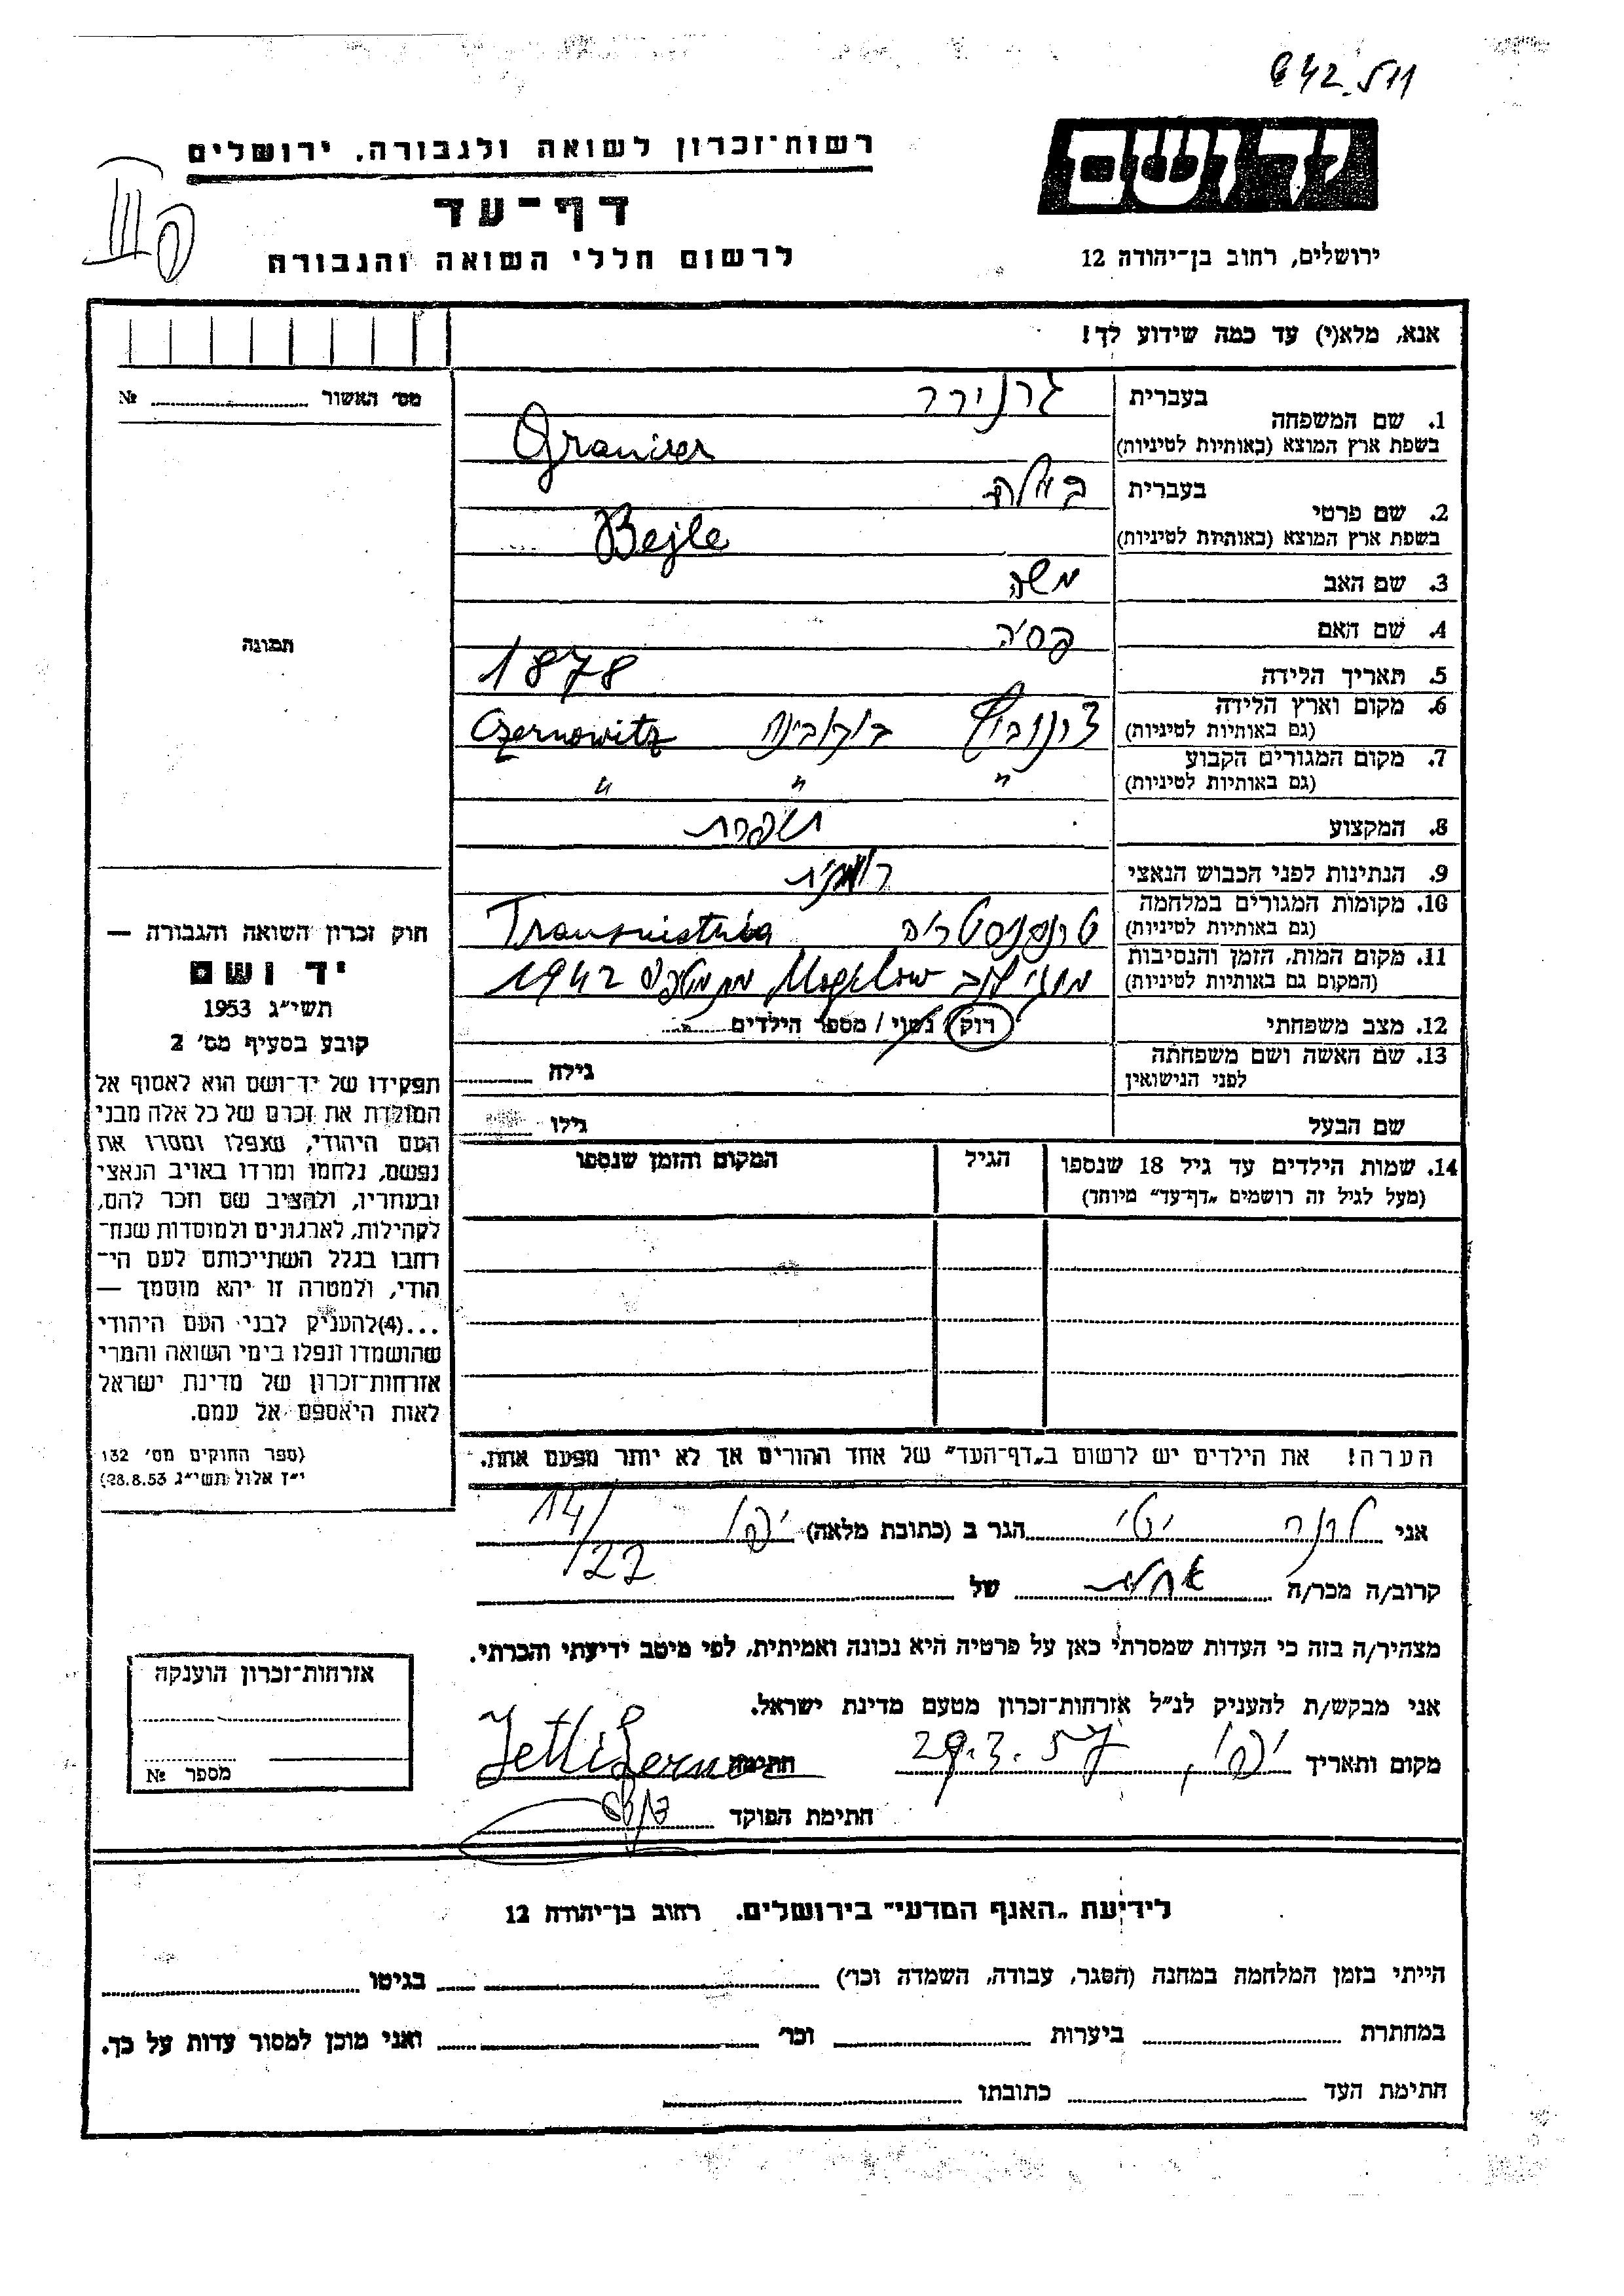 642.511
יד ושם
רשות־זכרון לשואה ולגבורה, ירושלים
דף־עד
לרשום חללי השואה והגבורה
ירושלים, רחוב בן־יהודה 12
אנא, מלא(י) עד כמה שידוע לך!
מס׳ האשור № 
1. שם המשפחה בעברית גרנירר
בשפת ארץ המוצא (באותיות לטיניות) Granirer
2. שם פרטי בעברית ביילה
בשפת ארץ המוצא (באותיות לטיניות) Bejle
3. שם האב משה
4. שם האם פסיה
5. תאריך הלידה 1878
6. מקום וארץ הלידה (גם באותיות לטיניות) צרנוביץ בוקובינה Czernowitz
7. מקום המגורים הקבוע (גם באותיות לטיניות) " " "
8. המקצוע תופרת
9. הנתינות לפני הכבוש הנאצי רומנית
10. מקומות המגורים במלחמה (גם באותיות לטיניות) טרנסניסטריה Transnistria
11. מקום המות, הזמן והנסיבות (המקום גם באותיות לטיניות) מוגילוב Mogilow מת מטיפוס 1942
12. מצב משפחתי רוק / נשוי / מספר הילדים
13. שם האשה ושם משפחתה לפני הנישואין גילה
שם הבעל גילו
14. שמות הילדים עד גיל 18 שנספו הגיל המקום והזמן שנספו
(מעל לגיל זה רושמים „דף־עד" מיוחד)
הערה! את הילדים יש לרשום ב„דף־העד" של אחד ההורים אך לא יותר מפעם אחת.
תמונה
חוק זכרון השואה והגבורה —
יד ושם
תשי״ג 1953
קובע בסעיף מס׳ 2
תפקידו של יד־ושם הוא לאסוף אל
המולדת את זכרם של כל אלה מבני
העם היהודי, שנפלו ומסרו את
נפשם, נלחמו ומרדו באויב הנאצי
ובעוזריו, ולהציב שם וזכר להם,
לקהילות, לארגונים ולמוסדות שנח־
רבו בגלל השתייכותם לעם הי־
הודי, ולמטרה זו יהא מוסמך —
...(4)להעניק לבני העם היהודי
שהושמדו ונפלו בימי השואה והמרי
אזרחות־זכרון של מדינת ישראל
לאות היאספם אל עמם.
(ספר החוקים מס׳ 132
י״ז אלול תשי״ג 28.8.53)
אני לרנר יטי הגר ב (כתובת מלאה) יפו 14/
/22
קרוב/ה מכר/ה אחות של
מצהיר/ה בזה כי העדות שמסרתי כאן על פרטיה היא נכונה ואמיתית, לפי מיטב ידיעתי והכרתי.
אני מבקש/ת להעניק לנ״ל אזרחות־זכרון מטעם מדינת ישראל.
מקום ותאריך יפו, 29.3.57 חתימה Jetti Lerner
חתימת הפוקד
אזרחות־זכרון הוענקה
מספר №
לידיעת „האגף המדעי" בירושלים. רחוב בן־יהודה 12
הייתי בזמן המלחמה במחנה (הסגר, עבודה, השמדה וכו׳) בגיטו
במחתרת ביערות וכו׳ ואני מוכן למסור עדות על כך.
חתימת העד כתובתו